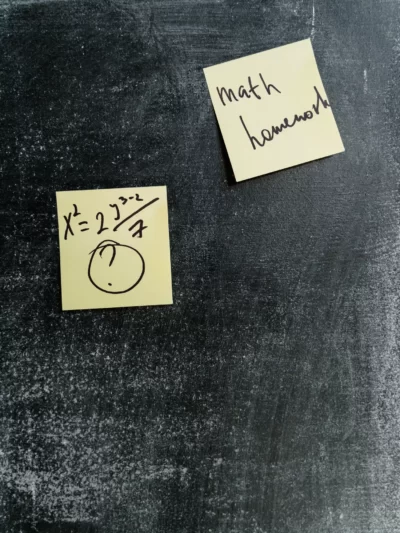 math
homework
x² = 2 y³⁻²/7
?